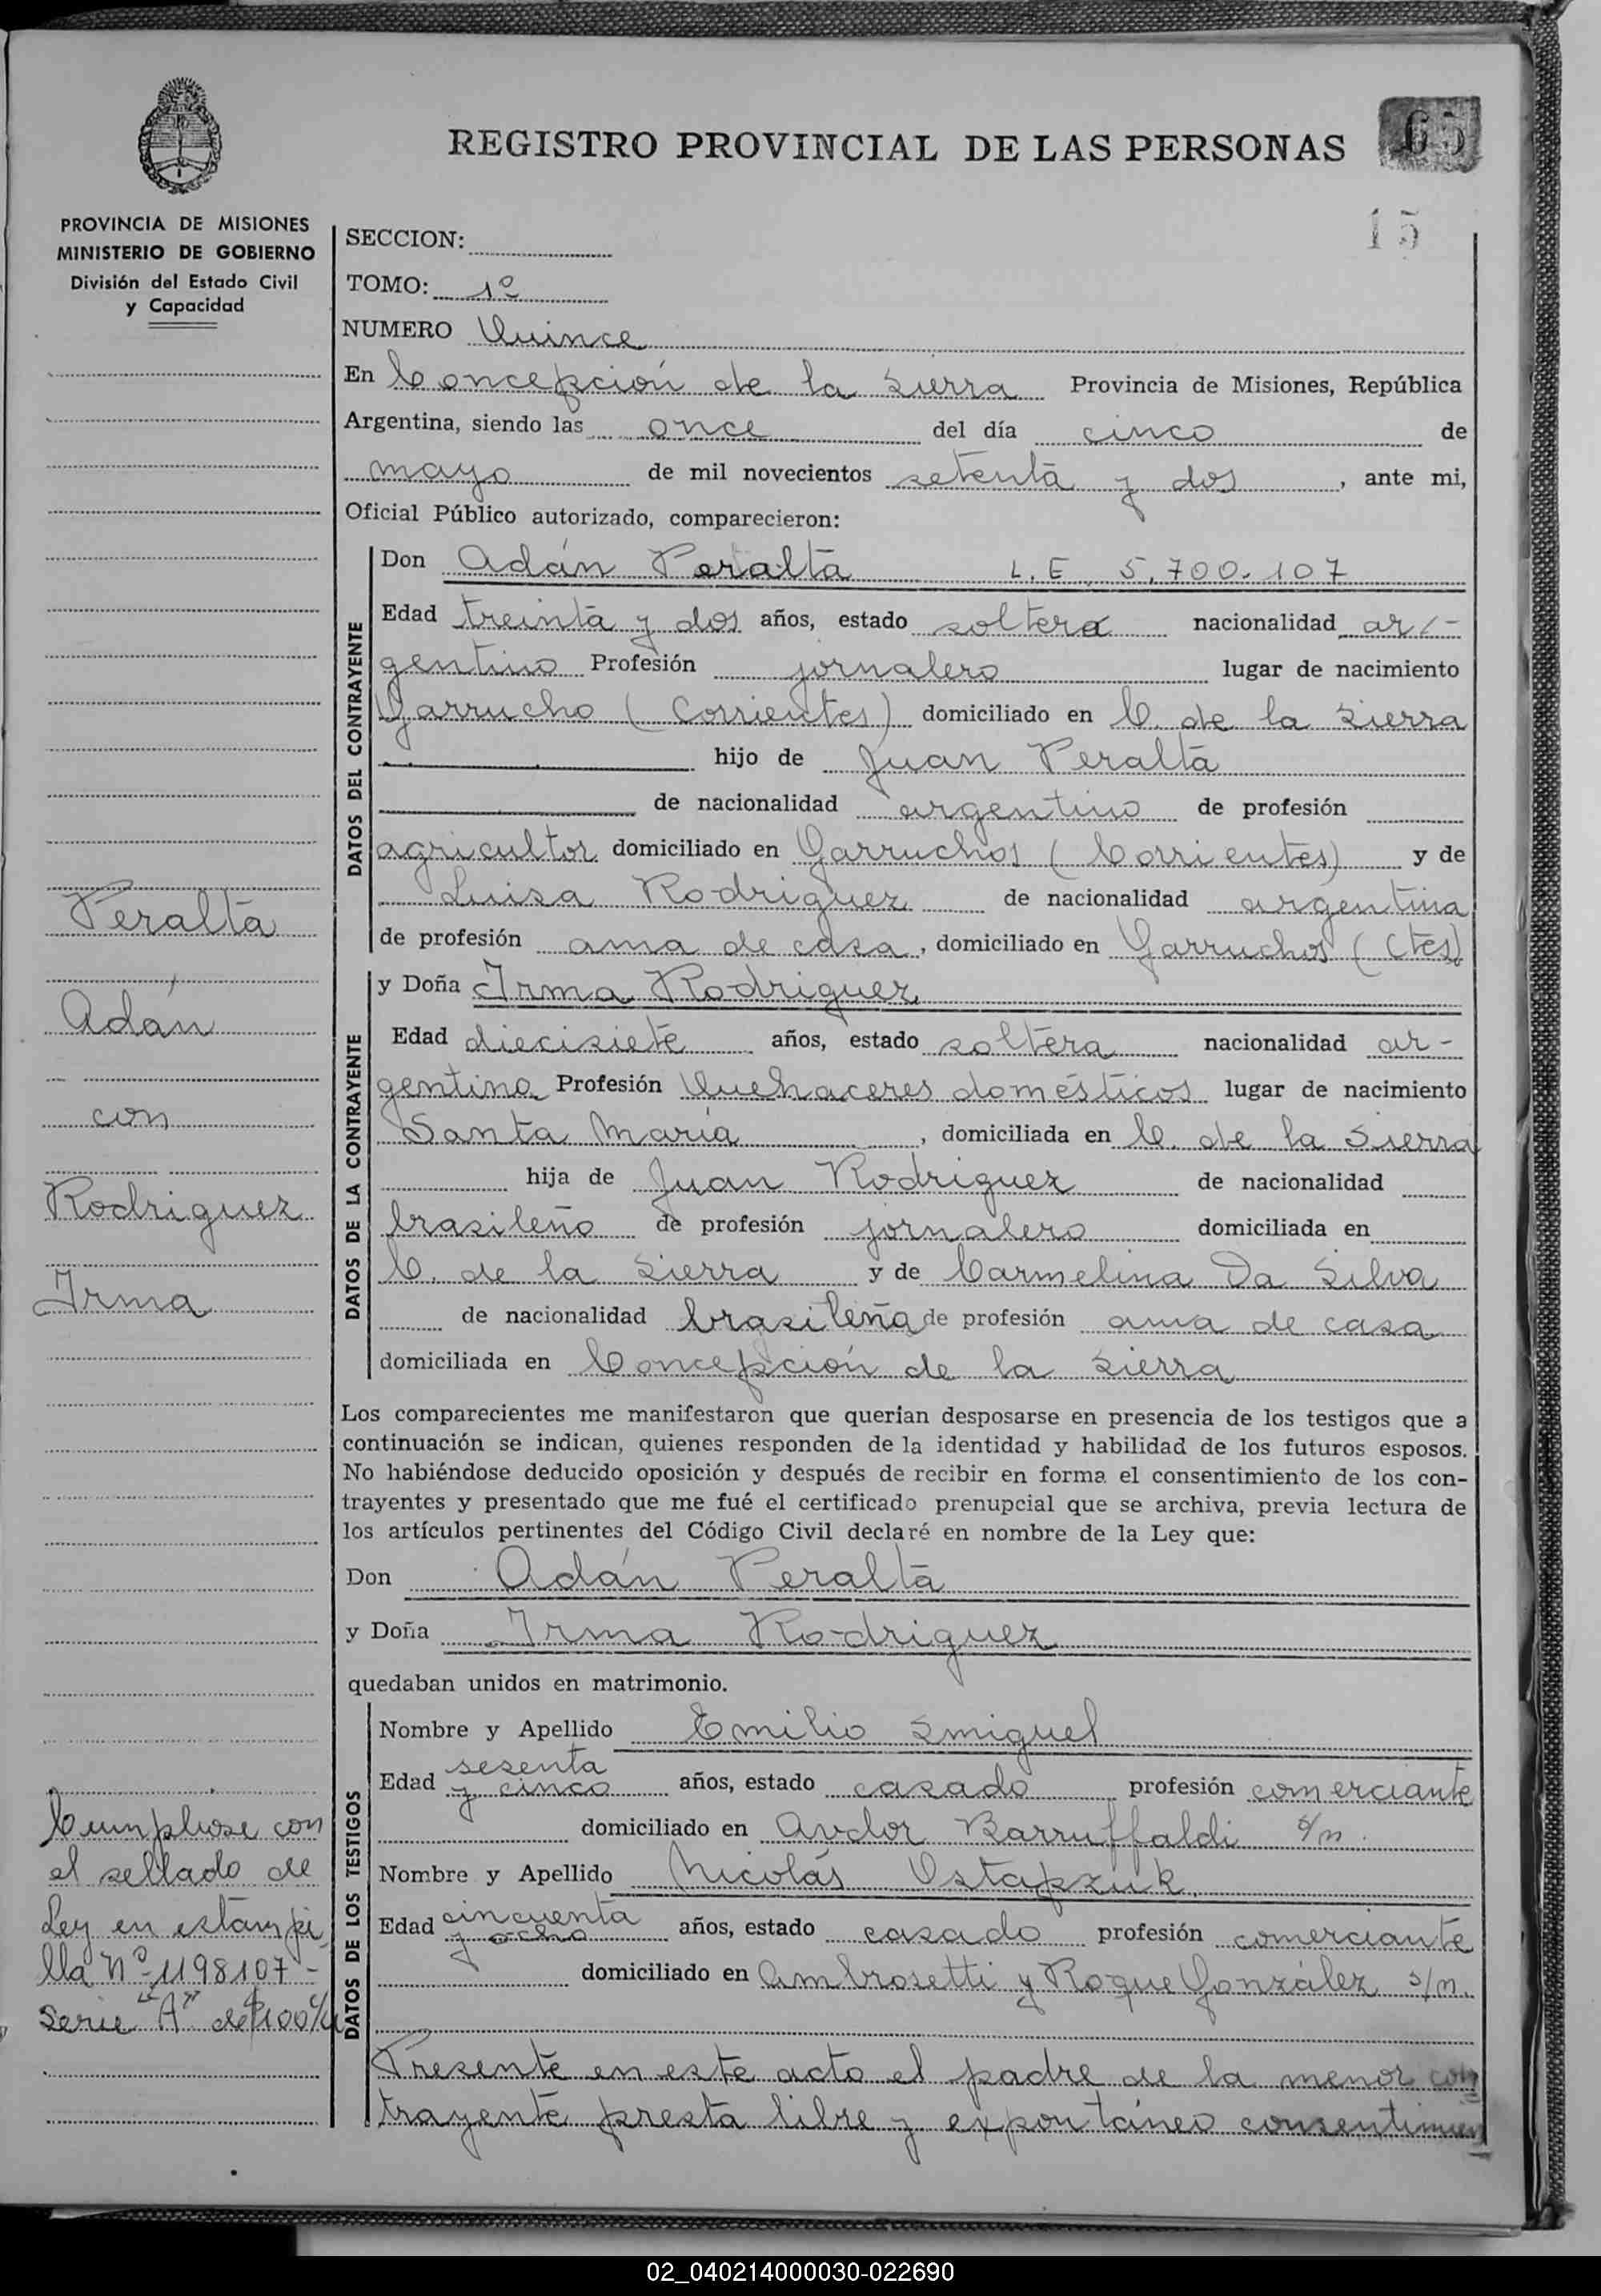 REGISTRO PROVINCIAL DE LAS PERSONAS
65
15
PROVINCIA DE MISIONES
MINISTERIO DE GOBIERNO
División del Estado Civil
y Capacidad
Peralta
Adán
con
Rodriguez
Irma
Cumpliose con
el sellado de
Ley en estampi
lla Nº 1198107 -
Serie "A" de $100
SECCION:
TOMO: 1º
NUMERO Quince
En Concepción de la Sierra Provincia de Misiones, República
Argentina, siendo las once del día cinco de
mayo de mil novecientos setenta y dos, ante mi,
Oficial Público autorizado, comparecieron:
DATOS DEL CONTRAYENTE
Don Adán Peralta L.E. 5.700.107
Edad treinta y dos años, estado soltero nacionalidad ar-
gentino Profesión jornalero lugar de nacimiento
Garrucho (Corrientes) domiciliado en C. de la Sierra
hijo de Juan Peralta
de nacionalidad argentino de profesión
agricultor domiciliado en Garruchos (Corrientes) y de
Luisa Rodriguez de nacionalidad argentina
de profesión ama de casa, domiciliado en Garruchos (Ctes)
DATOS DE LA CONTRAYENTE
y Doña Irma Rodriguez
Edad diecisiete años, estado soltera nacionalidad ar-
gentina Profesión Quehaceres domésticos lugar de nacimiento
Santa María, domiciliada en C. de la Sierra
hija de Juan Rodriguez de nacionalidad
brasileño de profesión jornalero domiciliada en
C. de la Sierra y de Carmelina Da Silva
de nacionalidad brasileña de profesión ama de casa
domiciliada en Concepción de la Sierra
Los comparecientes me manifestaron que querían desposarse en presencia de los testigos que a
continuación se indican, quienes responden de la identidad y habilidad de los futuros esposos.
No habiéndose deducido oposición y después de recibir en forma el consentimiento de los con-
trayentes y presentado que me fué el certificado prenupcial que se archiva, previa lectura de
los artículos pertinentes del Código Civil declaré en nombre de la Ley que:
Don Adán Peralta
y Doña Irma Rodriguez
quedaban unidos en matrimonio.
DATOS DE LOS TESTIGOS
Nombre y Apellido Emilio Smiguel
Edad sesenta y cinco años, estado casado profesión comerciante
domiciliado en Avdor Barruffaldi s/n.
Nombre y Apellido Nicolás Ostapzuk
Edad cincuenta y ocho años, estado casado profesión comerciante
domiciliado en Ambrosetti y Roque González s/n.
Presente en este acto el padre de la menor con
trayente presta libre y expontáneo consentimien
02_040214000030-022690